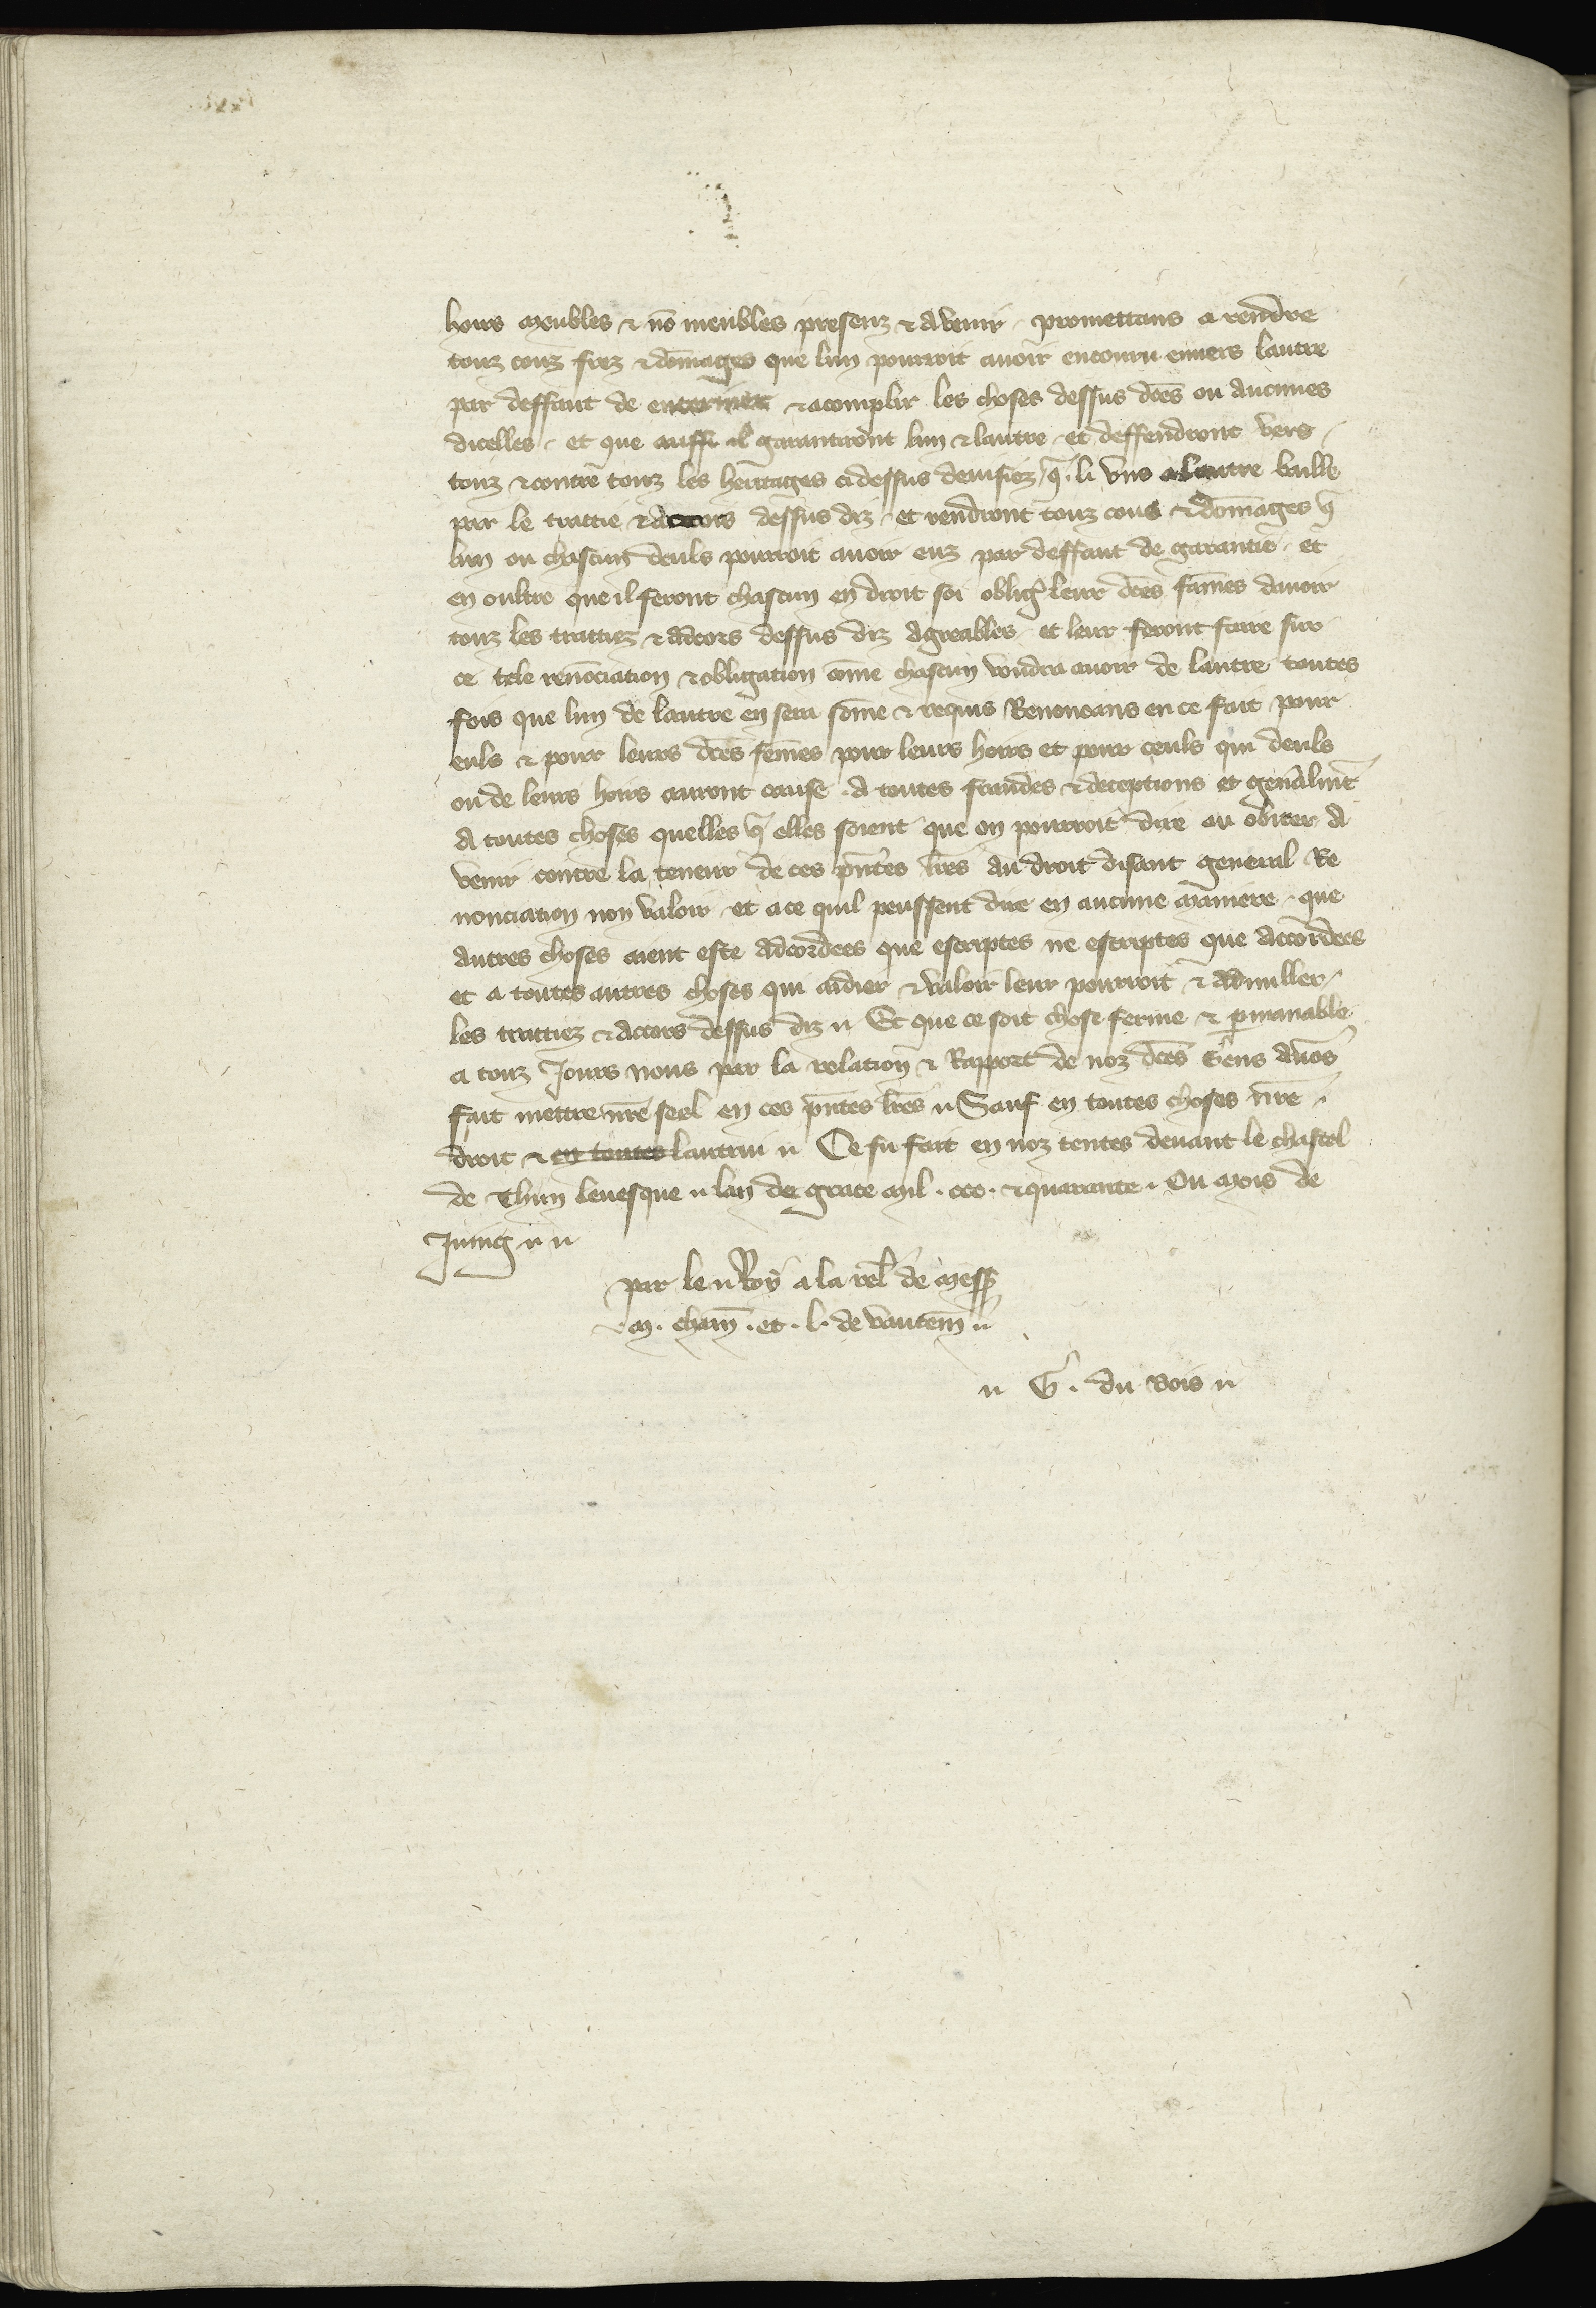 hoirs meubles & nō meubles presenz & avenir promettans a rendre
touz couz frez & dōmages que lun pourroit avoir encouru envers lautre
par deffaut de enteriner & acomplir les choses dessus dc̄es ou aucunes
dicelles. et que aussi il garantiront lun & lautre et deffendront vers
touz & contre touz les heritages ci dessus devisiez q̄. li uns a lautre baille
par le traitie & accors dessus diz. et rendront touz cous & dōmages q̄
lun ou chascun deuls pourroit avoir euz par deffaut de garantie. et
en oultre que il feront chascun en droit soi oblig̾ leur dc̄es fāmes davoir
touz les traitiez & accors dessus diz agreables. et leur feront faire sur
ce tele renōciation & obligation cōme chascun voudra avoir de lautre toutes
fois que lun de lautre en sera sōme & requis Renoncans en ce fait pour
euls & pour leurs dc̄es fēmes pour leurs hoirs et pour ceuls qui deuls
ou de leurs hoirs auront cause. a toutes fraudes & deceptions et gen̄alm̄t
A toutes choses quelles q̄ elles soient que on pourroit dire ou obicer a
venir contre la teneur de ces pn̄tes lr̄es au droit disant general Re
nonciation non valoir. et a ce quil peussent dire en aucune maniere. que
autres choses aient este adcordees que escriptes ne escriptes que accordees
et a toutes autres choses qui aidier & valoir leur pourroit & adnuller
les traitiez & accors dessus diz. Et que ce soit chose ferme & p̄manable
a touz Jours nous par la relation & Rapport de noz dc̄es Gens avōs
fait mettre nr̄e seel en ces pn̄tes lr̄es. Sauf en toutes choses nr̄e
droit & en toutes lautrui. Ce fu fait en noz tentes devant le chastel
de Thun levesque. lan de grace mil. ccc. & quarante. Ou mois de
Juing
par le Roy a la rel̄ de mess̄
.m. cham̄. et. l. de vautem̄
G̾. du Bois